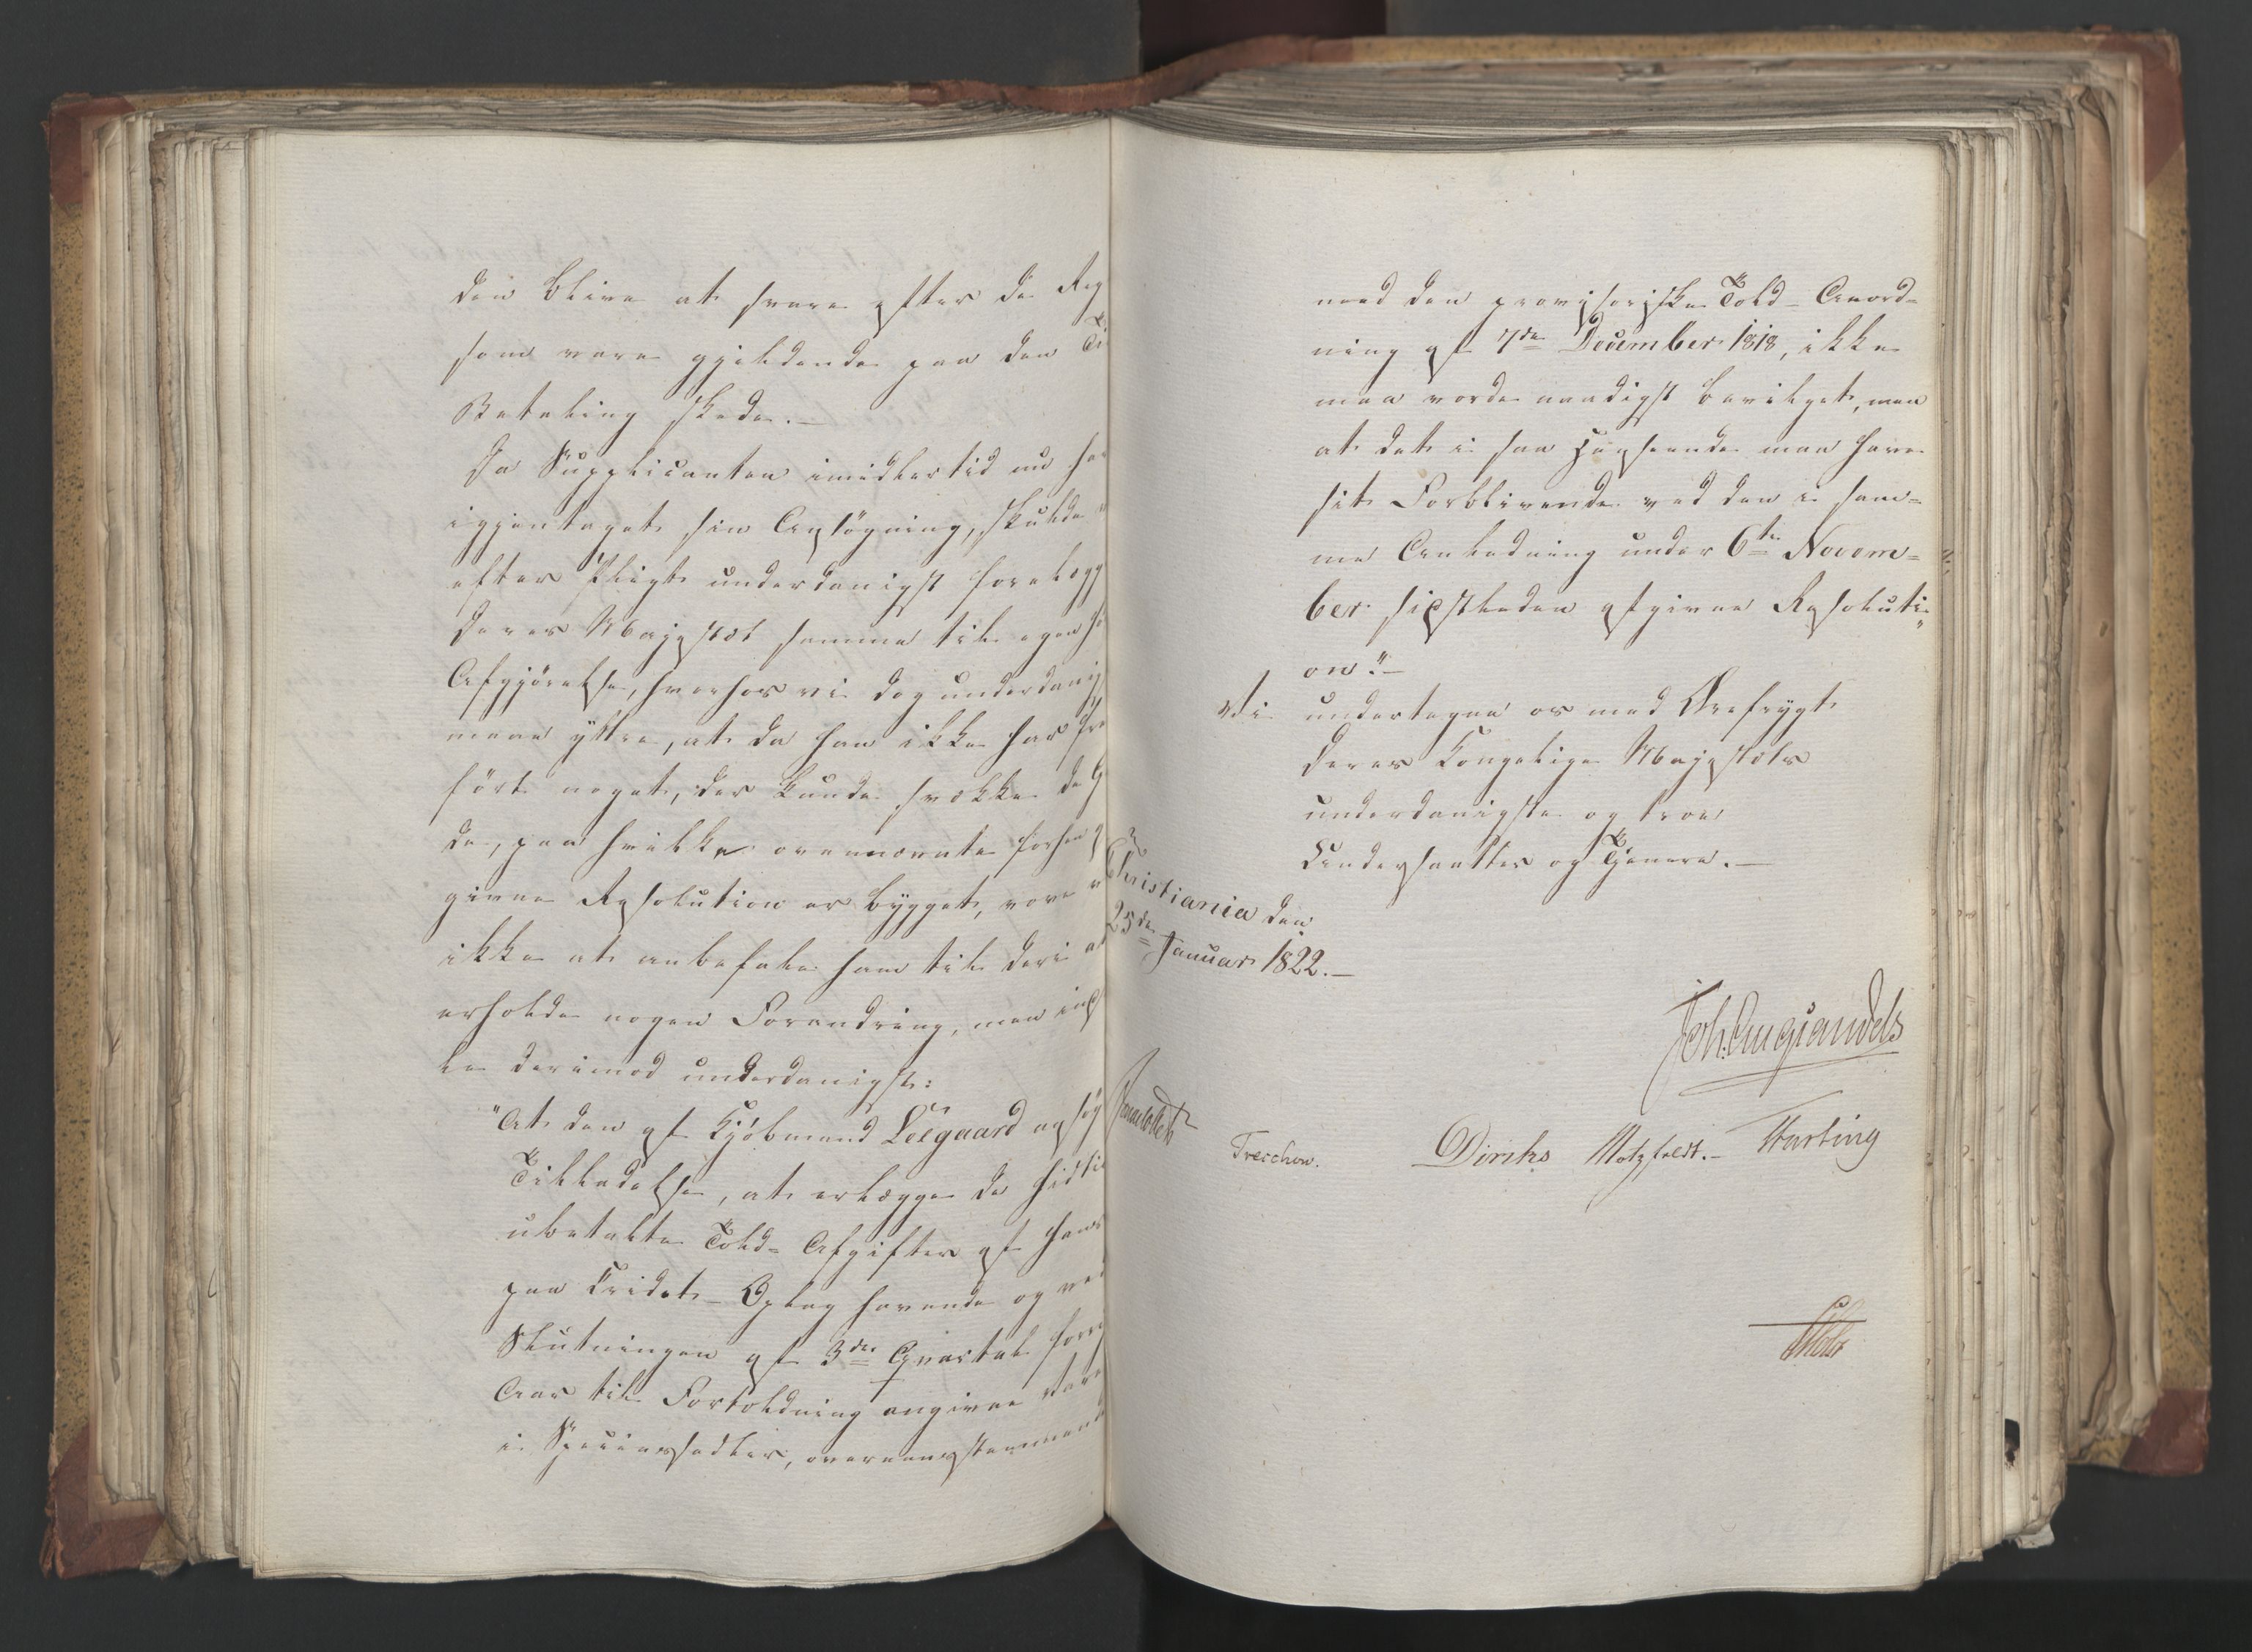 den blive at svare efter de Reg
som vare gjældende paa den Ti
Betaling skede.—
Da Supplicanten imidlertid nu ha
igjentaget sin Ansøgning, skulde
efter Pligt underdanigst forelægg
Deres Majestæt samme til egen hø
Afgjørelse, hvorhos vi dog underdanig
maae yttre, at da han ikke har fre
ført noget, der kunde svække de G
de, paa hvilke ovennævnte forhen
givne Resolution er bygget, vove v
ikke at anbefale ham til deri at
erholde nogen Forandring, men ind
le derimod underdanigst:
"At den af Kjøbmand Leegaard ansøg
Tilladelse, at erlægge de hidtil
ubetalte Told-Afgifter af hans
paa Credit-Oplag havende og ved
Slutningen af 3die Qvartal forri
Aar til Fortoldning angivne Vare
i Speciessedler, overeensstemmend
med den provisoriske Told-Anord-
ning af 7de December 1818, ikke
maa vorde naadigst bevilget, men
at det i saa Henseende maa have
sit Forblivende ved den i sam-
me Anledning under 6te Novem-
ber sidstleden afgivne Resoluti-
on."—
Vi undertegne os med Ærefrygt
Deres Kongelige Majestæts
underdanigste og troe
Undersaatter og Tjenere.—
Christiania den
25de Januar 1822.—
Treschow.
Diriks Motzfeldt.— Harting